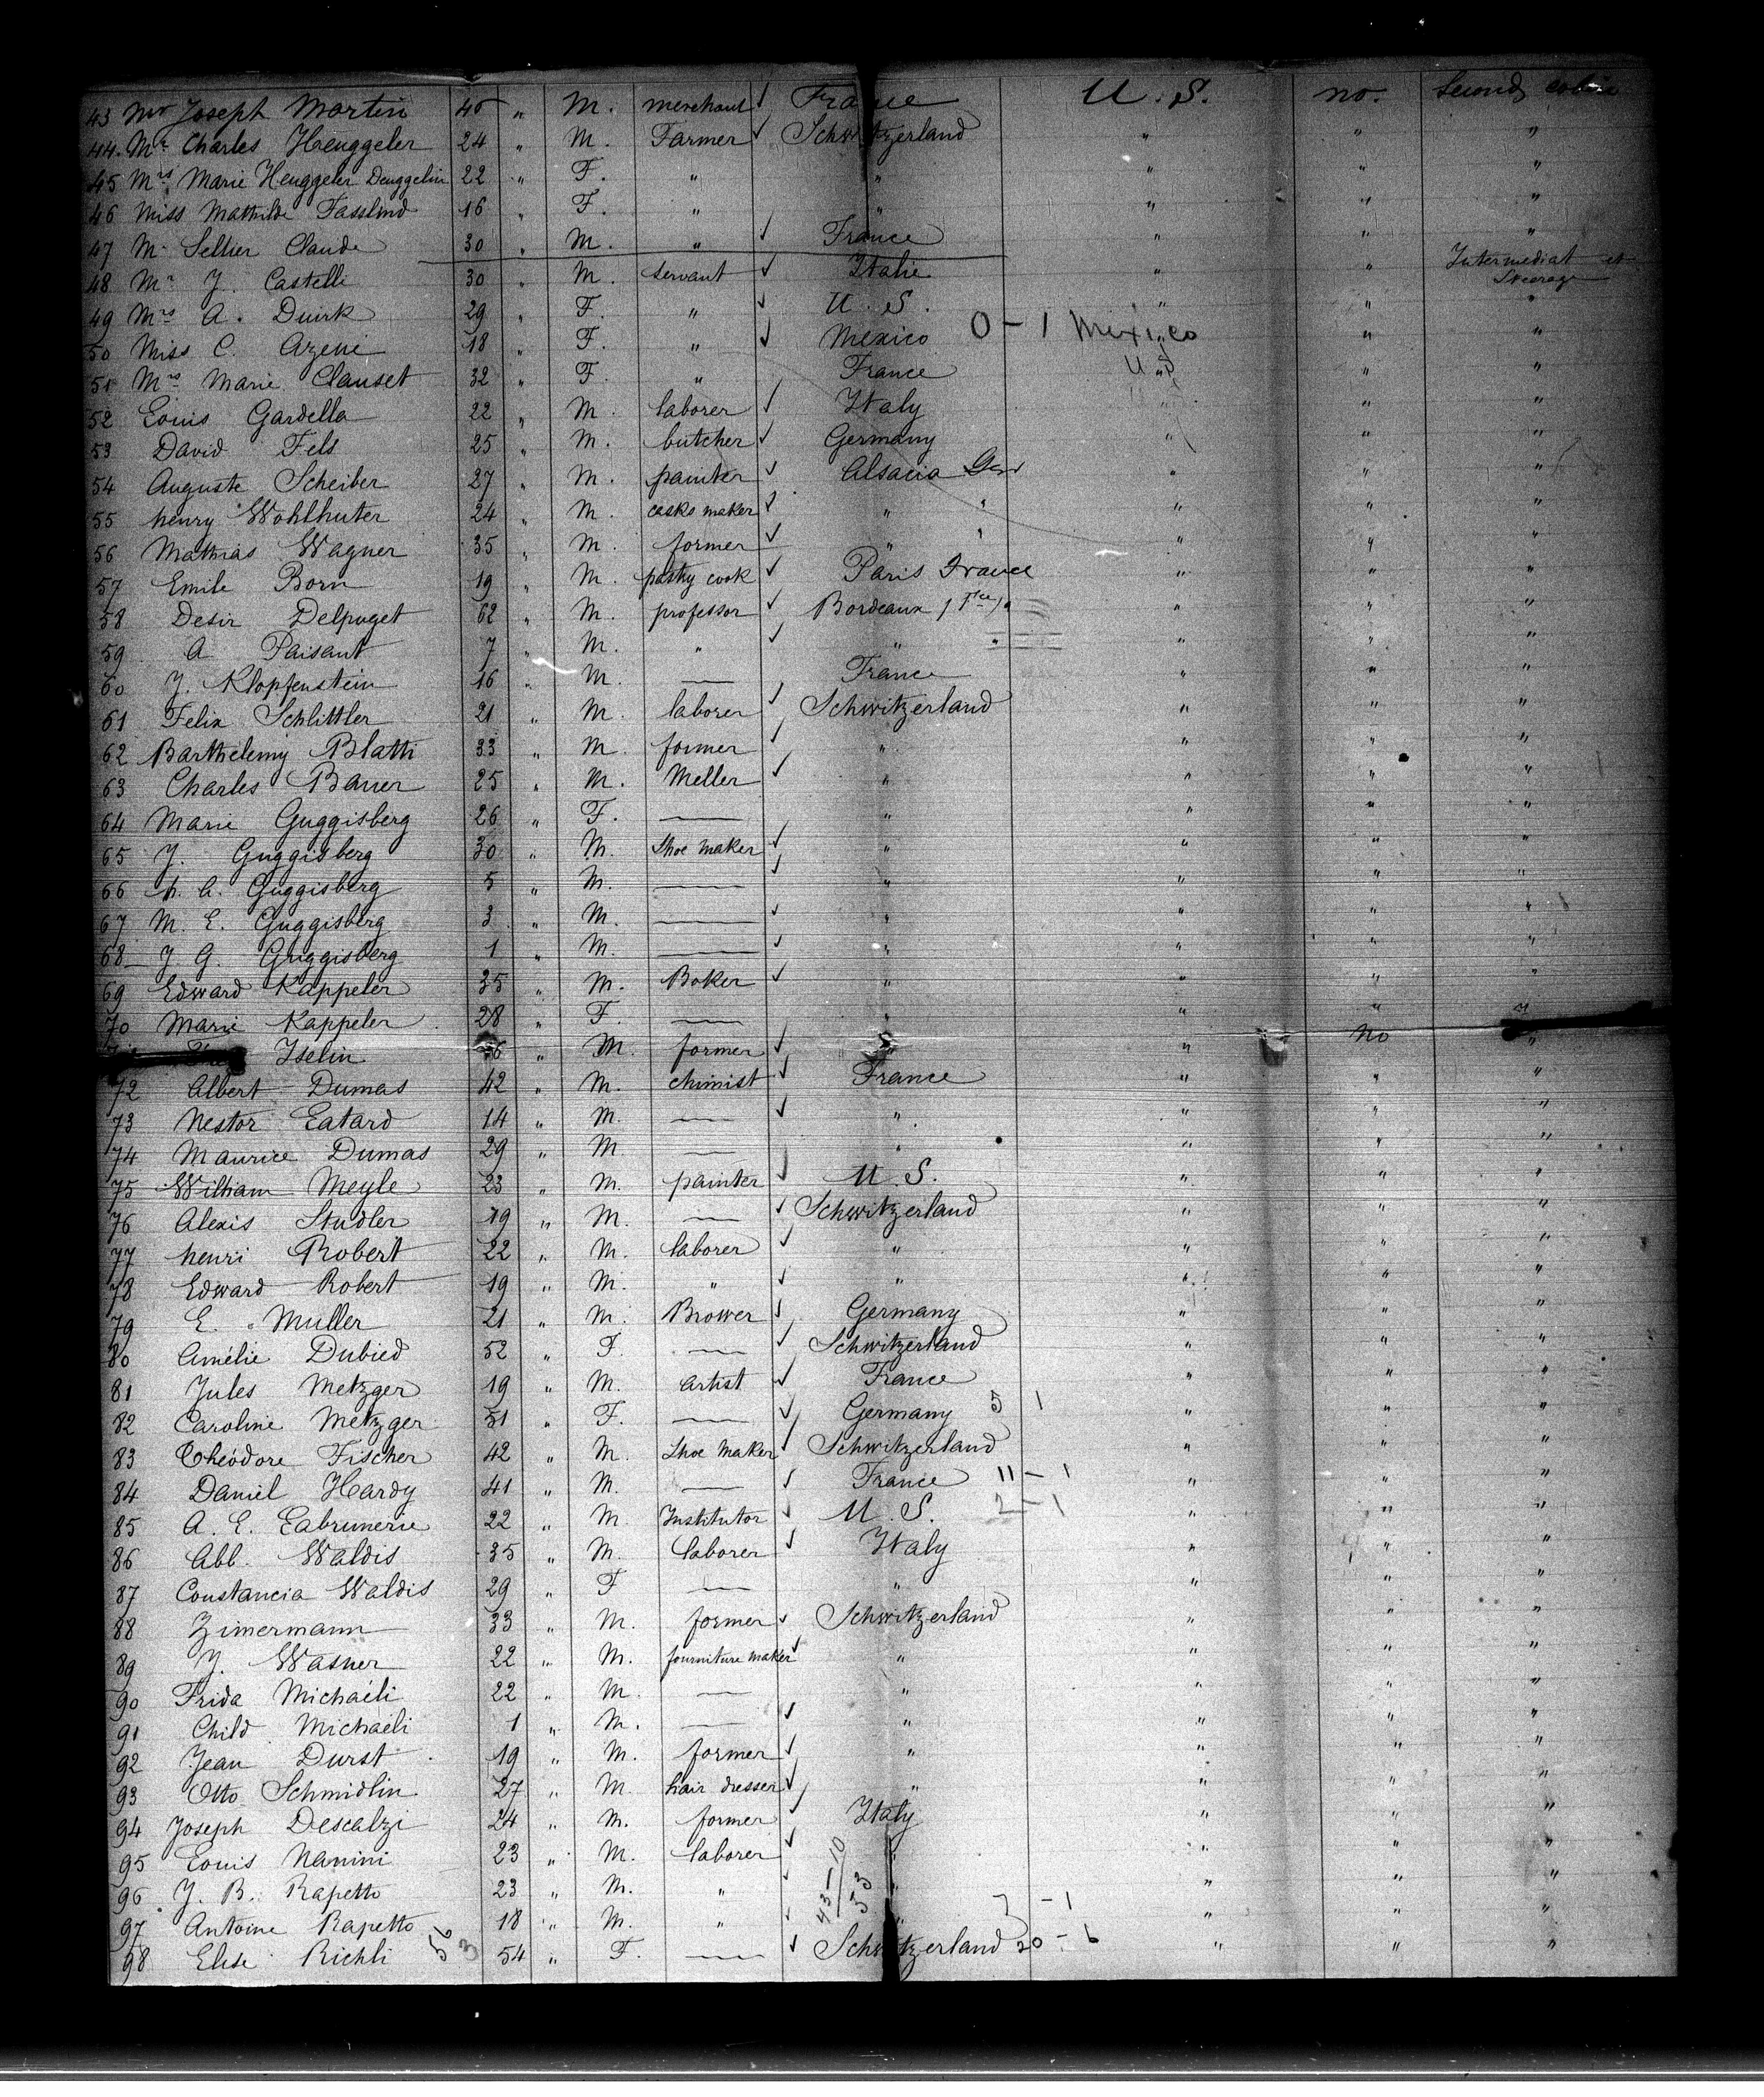 43 Mr Joseph Martin 40 " M. merchant ✓ France U. S. no. Second cabin
44. Mr Charles Henggeler 24 " M. Farmer ✓ Schwitzerland " " "
45 Mrs Marie Henggeler Denggelin 22 " F. " " " " "
46 Miss Mathilde Fasslind 16 " F. " " " " "
47 Mr Sellier Claude 30 " M. " ✓ France " " "
48 Mr J. Castelli 30 " M. servant ✓ Italie " " Intermediat et Steerage
49 Mrs A. Duirk 29 " F. " ✓ U. S. " " "
50 Miss C. Azeni 18 " F. " ✓ Mexico 0 - 1 Mexico " "
51 Mrs Marie Clauset 32 " F. " France U S " "
52 Louis Gardella 22 " M. laborer ✓ Italy " " "
53 David Fels 25 " M. butcher ✓ Germany " " "
54 Auguste Scheiber 27 " M. painter ✓ Alsacia Ger " " "
55 henry Wohlhuter 24 " M. casks maker ✓ " " " " "
56 Mathias Wagner 35 " M. former ✓ " " " " "
57 Emile Born 19 " M. pastry cook ✓ Paris France " " "
58 Desir Delpuget 62 " M. professor ✓ Bordeaux / Fce / " " "
59 A Paisant 7 " M. " ✓ " " " " "
60 J. Klopfenstein 16 " M. — France " " "
61 Felix Schlittler 21 " M. laborer ✓ Schwitzerland " " "
62 Barthelemy Blatti 33 " M. former ✓ " " " "
63 Charles Bauer 25 " M. Meller ✓ " " " "
64 Marie Guggisberg 26 " F. — " " " "
65 J. Guggisberg 30 " M. Shoe maker ✓ " " " "
66 h. A. Guggisberg 5 " M. — ✓ " " " "
67 M. E. Guggisberg 3 " M. — ✓ " " " "
68 J G. Guggisberg 1 " M. — ✓ " " " "
69 Edward Kappeler 35 " M. Boker ✓ " " " "
70 Marie Kappeler 28 " F. — " " " "
Iselin 36 " M. former ✓ " " no "
72 Albert Dumas 42 " M. chimist ✓ France " " "
73 Nestor Eatard 14 " M. — ✓ " " " "
74 Maurice Dumas 29 " M — " " " "
75 William Meyle 23 " M. painter ✓ U. S. " " "
76 Alexis Studler 19 " M. — ✓ Schwitzerland " " "
77 henri Robert 22 " M. laborer ✓ " " " "
78 Edward Robert 19 " M. " ✓ " " " "
79 E. Muller 21 " M. Brower ✓ Germany " " "
80 Amélie Dubied 52 " F. — ✓ Schwitzerland " " "
81 Jules Metzger 19 " M. artist ✓ France " " "
82 Caroline Metzger 51 " F. — ✓ Germany 5 1 " " "
83 Théodore Fischer 42 " M. Shoe maker ✓ Schwitzerland " " "
84 Daniel Hardy 41 " M. — ✓ France 11 - 1 " " "
85 A. E. Labrunerie 22 " M. Institutor ✓ U. S. 2 - 1 " " "
86 Abb. Waldis 35 " M. laborer ✓ Italy " " "
87 Constancia Waldis 29 " F — " " " "
88 Zimermann 33 " M. former ✓ Schwitzerland " " "
89 J. Wasner 22 " M. fourniture maker ✓ " " " "
90 Frida Michaeli 22 " M. — " " " "
91 Child Michaeli 1 " M. — ✓ " " " "
92 Jean Durst 19 " M. former ✓ " " " "
93 Otto Schmidlin 27 " M. hair dresser ✓ " " " "
94 Joseph Descalzi 24 " M. former ✓ Italy " " "
95 Louis Nanini 23 " M. laborer ✓ " " " "
96 J. B. Rapetto 23 " M. " ✓ 43-10 " " " "
97 Antoine Rapetto 18 " M. " ✓ 53 " 7 - 1 " " "
98 Elise Richli 56 3 54 " F. — ✓ Schwitzerland 20 - 6 " " "